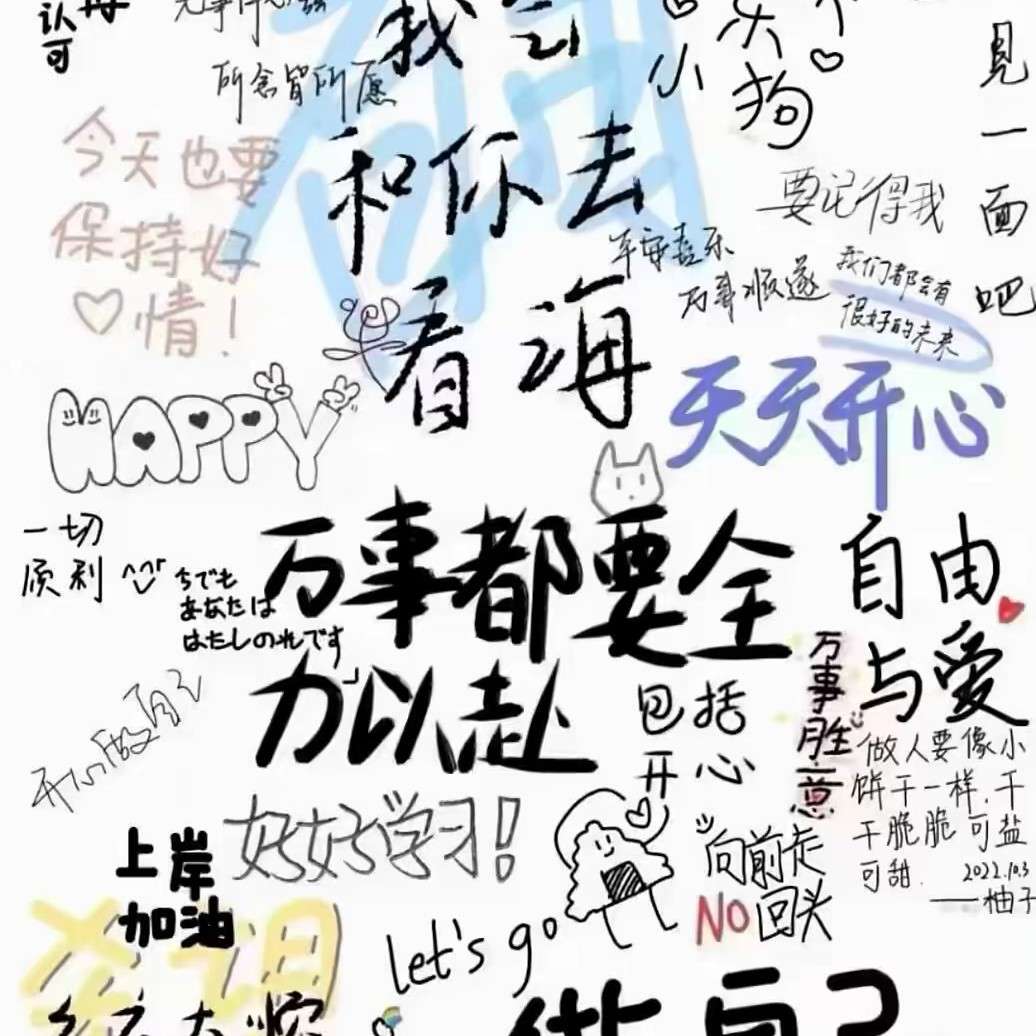 认可
我会
和你去
看海
所念皆所愿
今天也要
保持好
情！
小
狗
見一面吧
要记得我
平安喜乐
万事顺遂
我们都会有
很好的未来
天天开心
HAPPY
一切
顺利
ちでも
あなたは
はたしのれです
万事都要全
力以赴
包括
开心
自由
与爱
万事胜意
做人要像小
饼干一样，干
干脆脆可盐
可甜.
2022.10.3
——柚子
开心做自己
好好学习！
上岸
加油
向前走
NO回头
let's go
做自己